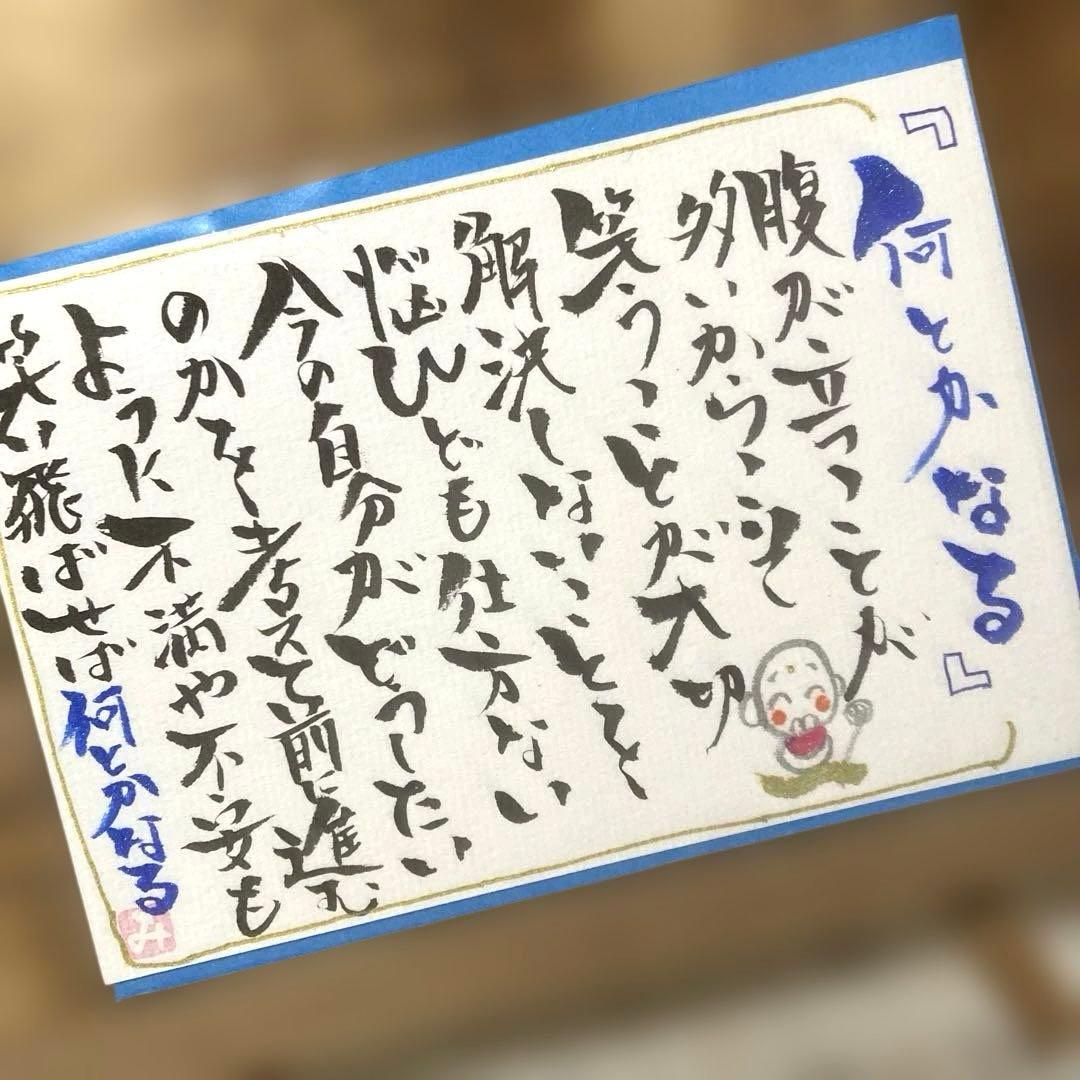 『何とかなる』
腹が立つことが
多いからこそ
笑うことが大切
解決しないことを
悩んでも仕方ない
今の自分がどうしたい
のかを考えて前に進む
ように不満や不安も
笑い飛ばせば何とかなる
み